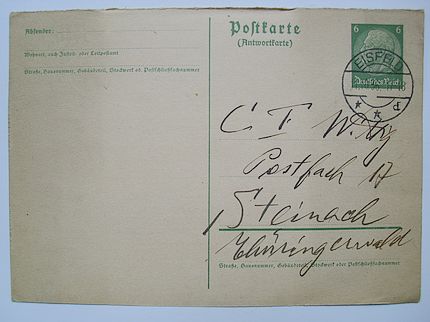 Absender:
Wohnort, auch Zustell- oder Leitpostamt
Straße, Hausnummer, Gebäudeteil, Stockwerk od. Postschließfachnummer
Postkarte
(Antwortkarte)
6 6
Deutsches Reich
EISFELD
d
C F
Postfach 17
Steinach
Thüringerwald
Straße, Hausnummer, Gebäudeteil, Stockwerk oder Postschließfachnummer